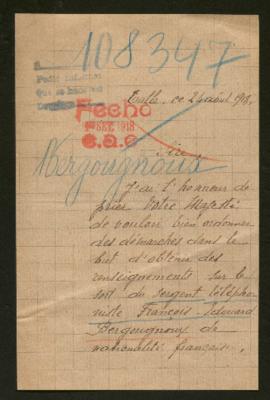 108347
Pedir
Que se
Tulle, ce 24 août 1918.
Fecho
SET. 1918
e.a.c
Sire,
Bergougnoux
J'ai l'honneur de
prier Votre Majesté
de vouloir bien ordonner
des démarches dans le
but d'obtenir des
renseignements sur le
sort du sergent télépho-
niste François Edouard
Bergougnoux de
nationalité française.